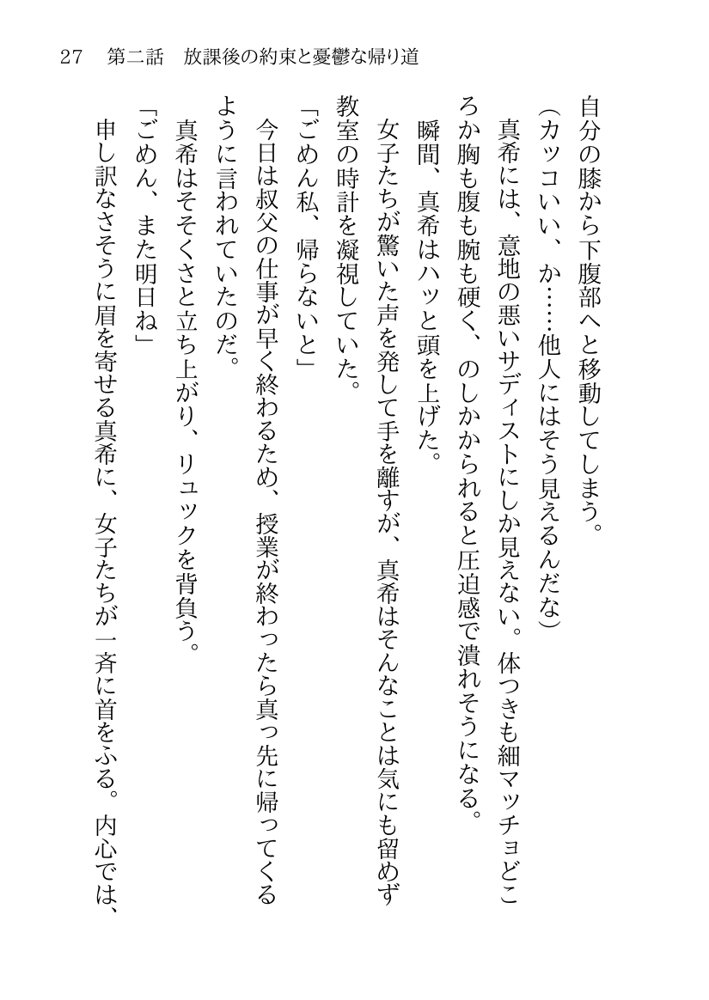 27　第二話　放課後の約束と憂鬱な帰り道
自分の膝から下腹部へと移動してしまう。
(カッコいい、か……他人にはそう見えるんだな)
真希には、意地の悪いサディストにしか見えない。体つきも細マッチョどこ
ろか胸も腹も腕も硬く、のしかかられると圧迫感で潰れそうになる。
瞬間、真希はハッと頭を上げた。
女子たちが驚いた声を発して手を離すが、真希はそんなことは気にも留めず
教室の時計を凝視していた。
「ごめん私、帰らないと」
今日は叔父の仕事が早く終わるため、授業が終わったら真っ先に帰ってくる
ように言われていたのだ。
真希はそそくさと立ち上がり、リュックを背負う。
「ごめん、また明日ね」
申し訳なさそうに眉を寄せる真希に、女子たちが一斉に首をふる。内心では、